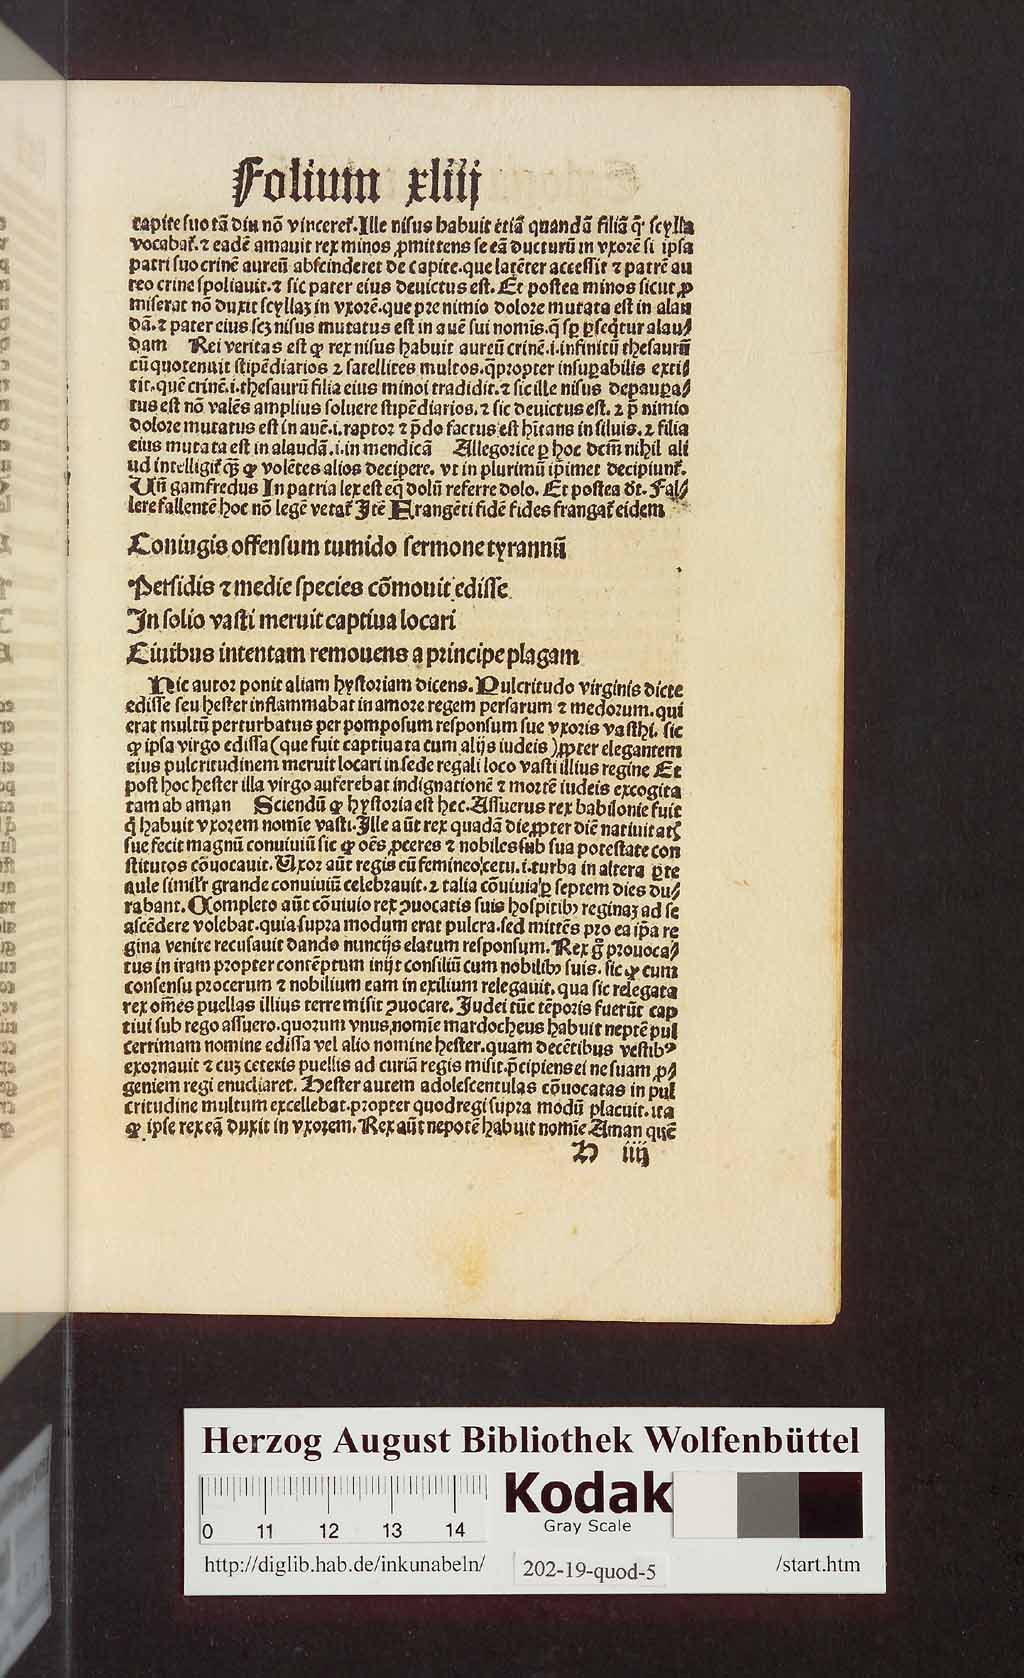 Folium xliij
capite suo tā diu nō vinceret᷑. Ille nisus habuit etiā quandā filiā q̄ scylla
vocabat᷑. ⁊ eadē amauit rex minos ꝓmittens se eā ducturū in vxorē si ipsa
patri suo crinē aureū abscinderet de capite. que latēter accessit ⁊ patrē au
reo crine spoliauit. ⁊ sic pater eius deuictus est. Et postea minos sicut ꝓ
miserat nō duxit scyllaꝫ in vxorē. que pre nimio dolore mutata est in alau
dā. ⁊ pater eius scꝫ nisus mutatus est in auē sui nomīs. q̄ sꝑ ꝑseq̄tur alau⸗
dam Rei veritas est ꝙ rex nisus habuit aureū crinē .i. infinitū thesaurū
cū quo tenuit stipēdiarios ⁊ satellites multos. q̄propter insuꝑabilis exti⸗
tit. quē crinē .i. thesaurū filia eius minoi tradidit. ⁊ sic ille nisus depauꝑa⸗
tus est nō valēs amplius soluere stipēdiarios. ⁊ sic deuictus est. ⁊ p̄ nimio
dolore mutatus est in auē .i. raptor ⁊ p̄do factus est hītans in siluis. ⁊ filia
eius mutata est in alaudā .i. in mendicā Allegorice ꝑ hoc dcm̄ nihil ali
ud intelligit᷑ qꝫ ꝙ volētes alios decipere. vt in plurimū ip̄imet decipiunt᷑.
Vn̄ gamfredus In patria lex est eq̄ dolū referre dolo. Et postea dt̄. Fal⸗
lere fallentē hoc nō legē vetat᷑ Itē Frangēti fidē fides frangat᷑ eidem
Coniugis offensum tumido sermone tyrannū
Persidis ⁊ medie species cōmouit edisse
In solio vasti meruit captiua locari
Ciuibus intentam remouens a principe plagam
Hic autor ponit aliam hystoriam dicens. Pulcritudo virginis dicte
edisse seu hester inflammabat in amore regem persarum ⁊ medorum. qui
erat multū perturbatus per pomposum responsum sue vxoris vasthi. sic
ꝙ ipsa virgo edissa (que fuit captiuata cum alijs iudeis) ꝓpter elegantem
eius pulcritudinem meruit locari in sede regali loco vasti illius regine Et
post hoc hester illa virgo auferebat indignationē ⁊ mortē iudeis excogita
tam ab aman Sciendū ꝙ hystoria est hec. Assuerus rex babilonie fuit
q̄ habuit vxorem nomīe vasti. Ille aūt rex quadā die ꝓpter diē natiuitatꝭ
sue fecit magnū conuiuiū sic ꝙ oēs ꝓceres ⁊ nobiles sub sua potestate con
stitutos cōuocauit. Vxor aūt regis cū femineo cetu .i. turba in altera ꝑte
aule similr̄ grande conuiuiū celebrauit. ⁊ talia cōuiuia ꝑ septem dies du⸗
rabant. Completo aūt cōuiuio rex ꝯuocatis suis hospitibꝫ reginaꝫ ad se
ascēdere volebat. quia supra modum erat pulcra. sed mittēs pro ea ip̄a re
gina venire recusauit dando nuncijs elatum responsum. Rex gͦ prouoca⸗
tus in iram propter contēptum inijt consiliū cum nobilibꝫ suis. sic ꝙ cum
consensu procerum ⁊ nobilium eam in exilium relegauit. qua sic relegata
rex om̄es puellas illius terre misit ꝯuocare. Iudei tūc tēporis fuerūt cap
tiui sub rego assuero. quorum vnus nomīe mardocheus habuit neptē pul
cerrimam nomine edissa vel alio nomine hester. quam decētibus vestibꝰ
exornauit ⁊ cuꝫ ceteris puellis ad curiā regis misit. p̄cipiens ei ne suam ꝓ⸗
geniem regi enucliaret. Hester autem adolescentulas cōuocatas in pul
critudine multum excellebat. propter quod regi supra modū placuit. ita
ꝙ ipse rex eā duxit in vxorem. Rex aūt nepotē habuit nomīe Aman quē
H iiij
Herzog August Bibliothek Wolfenbüttel
0 11 12 13 14
Kodak
Gray Scale
http://diglib.hab.de/inkunabeln/
202-19-quod-5
/start.htm